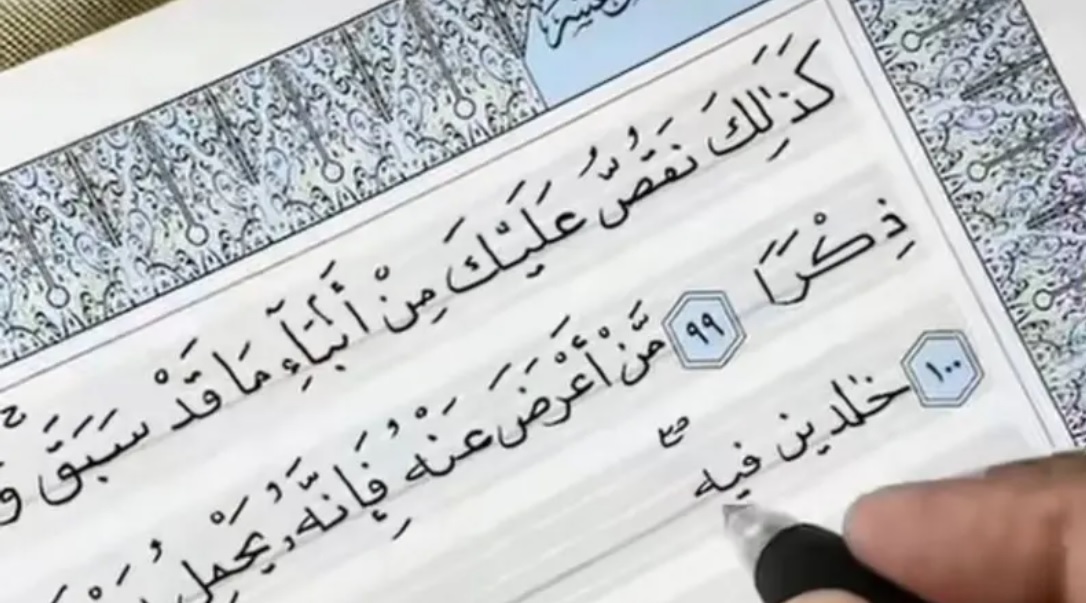 كَذَٰلِكَ نَقُصُّ عَلَيْكَ مِنْ أَنۢبَآءِ مَا قَدْ سَبَقَ
ذِكْرًا ٩٩ مَّنْ أَعْرَضَ عَنْهُ فَإِنَّهُۥ يَحْمِلُ
١٠٠ خٰلدين فيه صلے